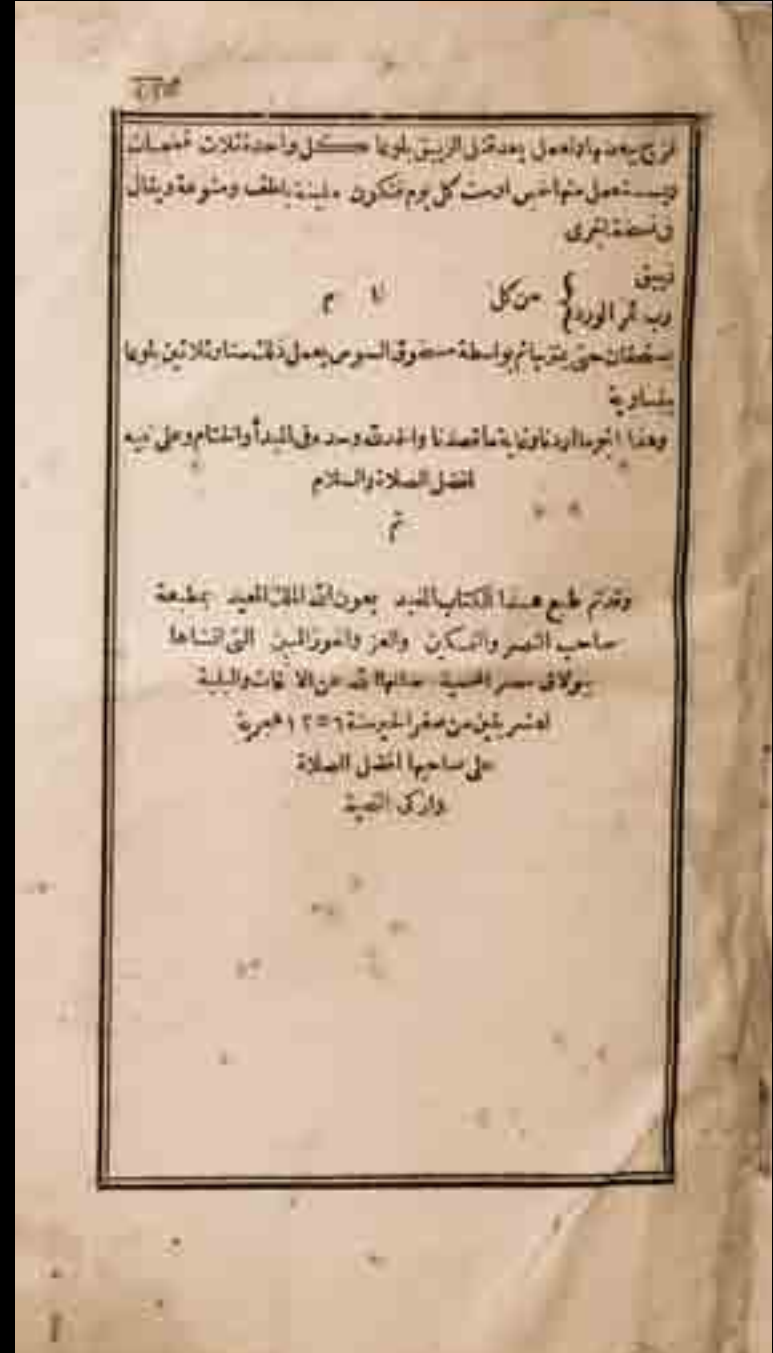 بعدقتل الزيبق بلوعا كل واحدة ثلاث قمحات
ويستعمل منها خمس اوست كل يوم فتكون ملينة بلطف ومنوعة ويقال
فى نسخة اخرى
زيبق
رب ثمر الورد } من كل م
يسحقان حتى يمتزجا ثم بواسطة مسحوق السوس يعمل ذلك ستا وثلاثين بلوعا
متساوية
وهذا آخر ما اردنا وغاية ما قصدنا والحمد لله وحده فى المبدأ والختام وعلى نبيه
افضل الصلاة والسلام
تم
وقد تم طبع هذا الكتاب المفيد بعون الله الملك المعيد بمطبعة
صاحب النصر والتمكين والعز والفوز المبين التى انشاها
ببولاق مصر المحمية صانها الله عن الافات والبلية
لعشر بقين من صفر الخير سنة ١٢٥٦ هجرية
على صاحبها افضل الصلاة
وازكى التحية